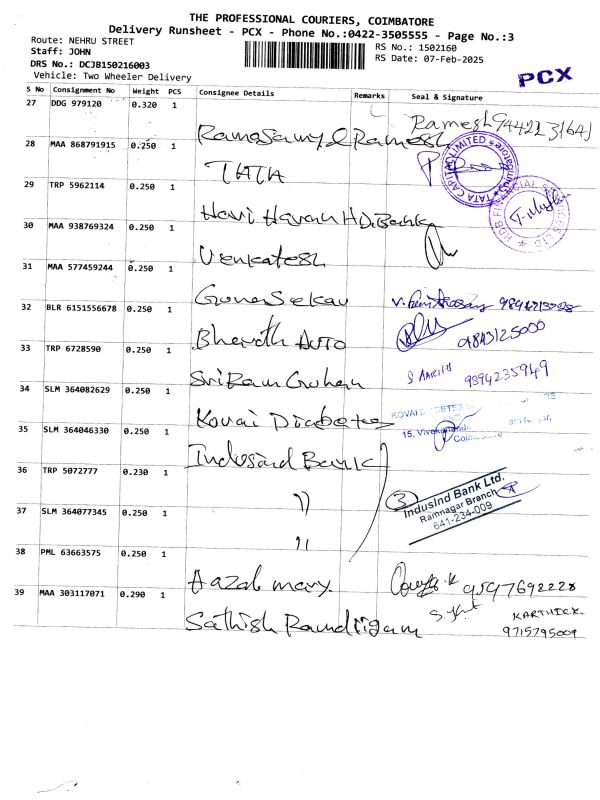 THE PROFESSIONAL COURIERS, COIMBATORE
Delivery Runsheet - PCX - Phone No.:0422-3505555 - Page No.:3
Route: NEHRU STREET
Staff: JOHN
DRS No.: DCJB150216003
Vehicle: Two Wheeler Delivery
RS No.: 1502160
RS Date: 07-Feb-2025
PCX
S No Consignment No Weight PCS Consignee Details Remarks Seal & Signature
27 DDG 979120 0.320 1 Ramasamy & Ramesh Ramesh
28 MAA 868791915 0.250 1 TATA
TATA CAPITAL LIMITED
29 TRP 5962114 0.250 1 Hari Haran HD Bank
HDB FINANCIAL SERVICES LTD
30 MAA 938769324 0.250 1 Venkatesh
31 MAA 577459244 0.250 1 Gunasekar
32 BLR 6151556678 0.250 1 Bharath Auto 9843125000
33 TRP 6728590 0.250 1 Sri Ram Guhan 9894235949
34 SLM 364082629 0.250 1 Kovai Diabetes
KOVAI
15,
Coimbatore
35 SLM 364046330 0.250 1 Indusind Bank
36 TRP 5072777 0.230 1 "
3
IndusInd Bank Ltd.
Ramnagar Branch
641-234-009
37 SLM 364077345 0.250 1 "
38 PML 63663575 0.250 1 mary. 9597692228
39 MAA 303117071 0.290 1 Sathish
KARTHICK.
9715795009